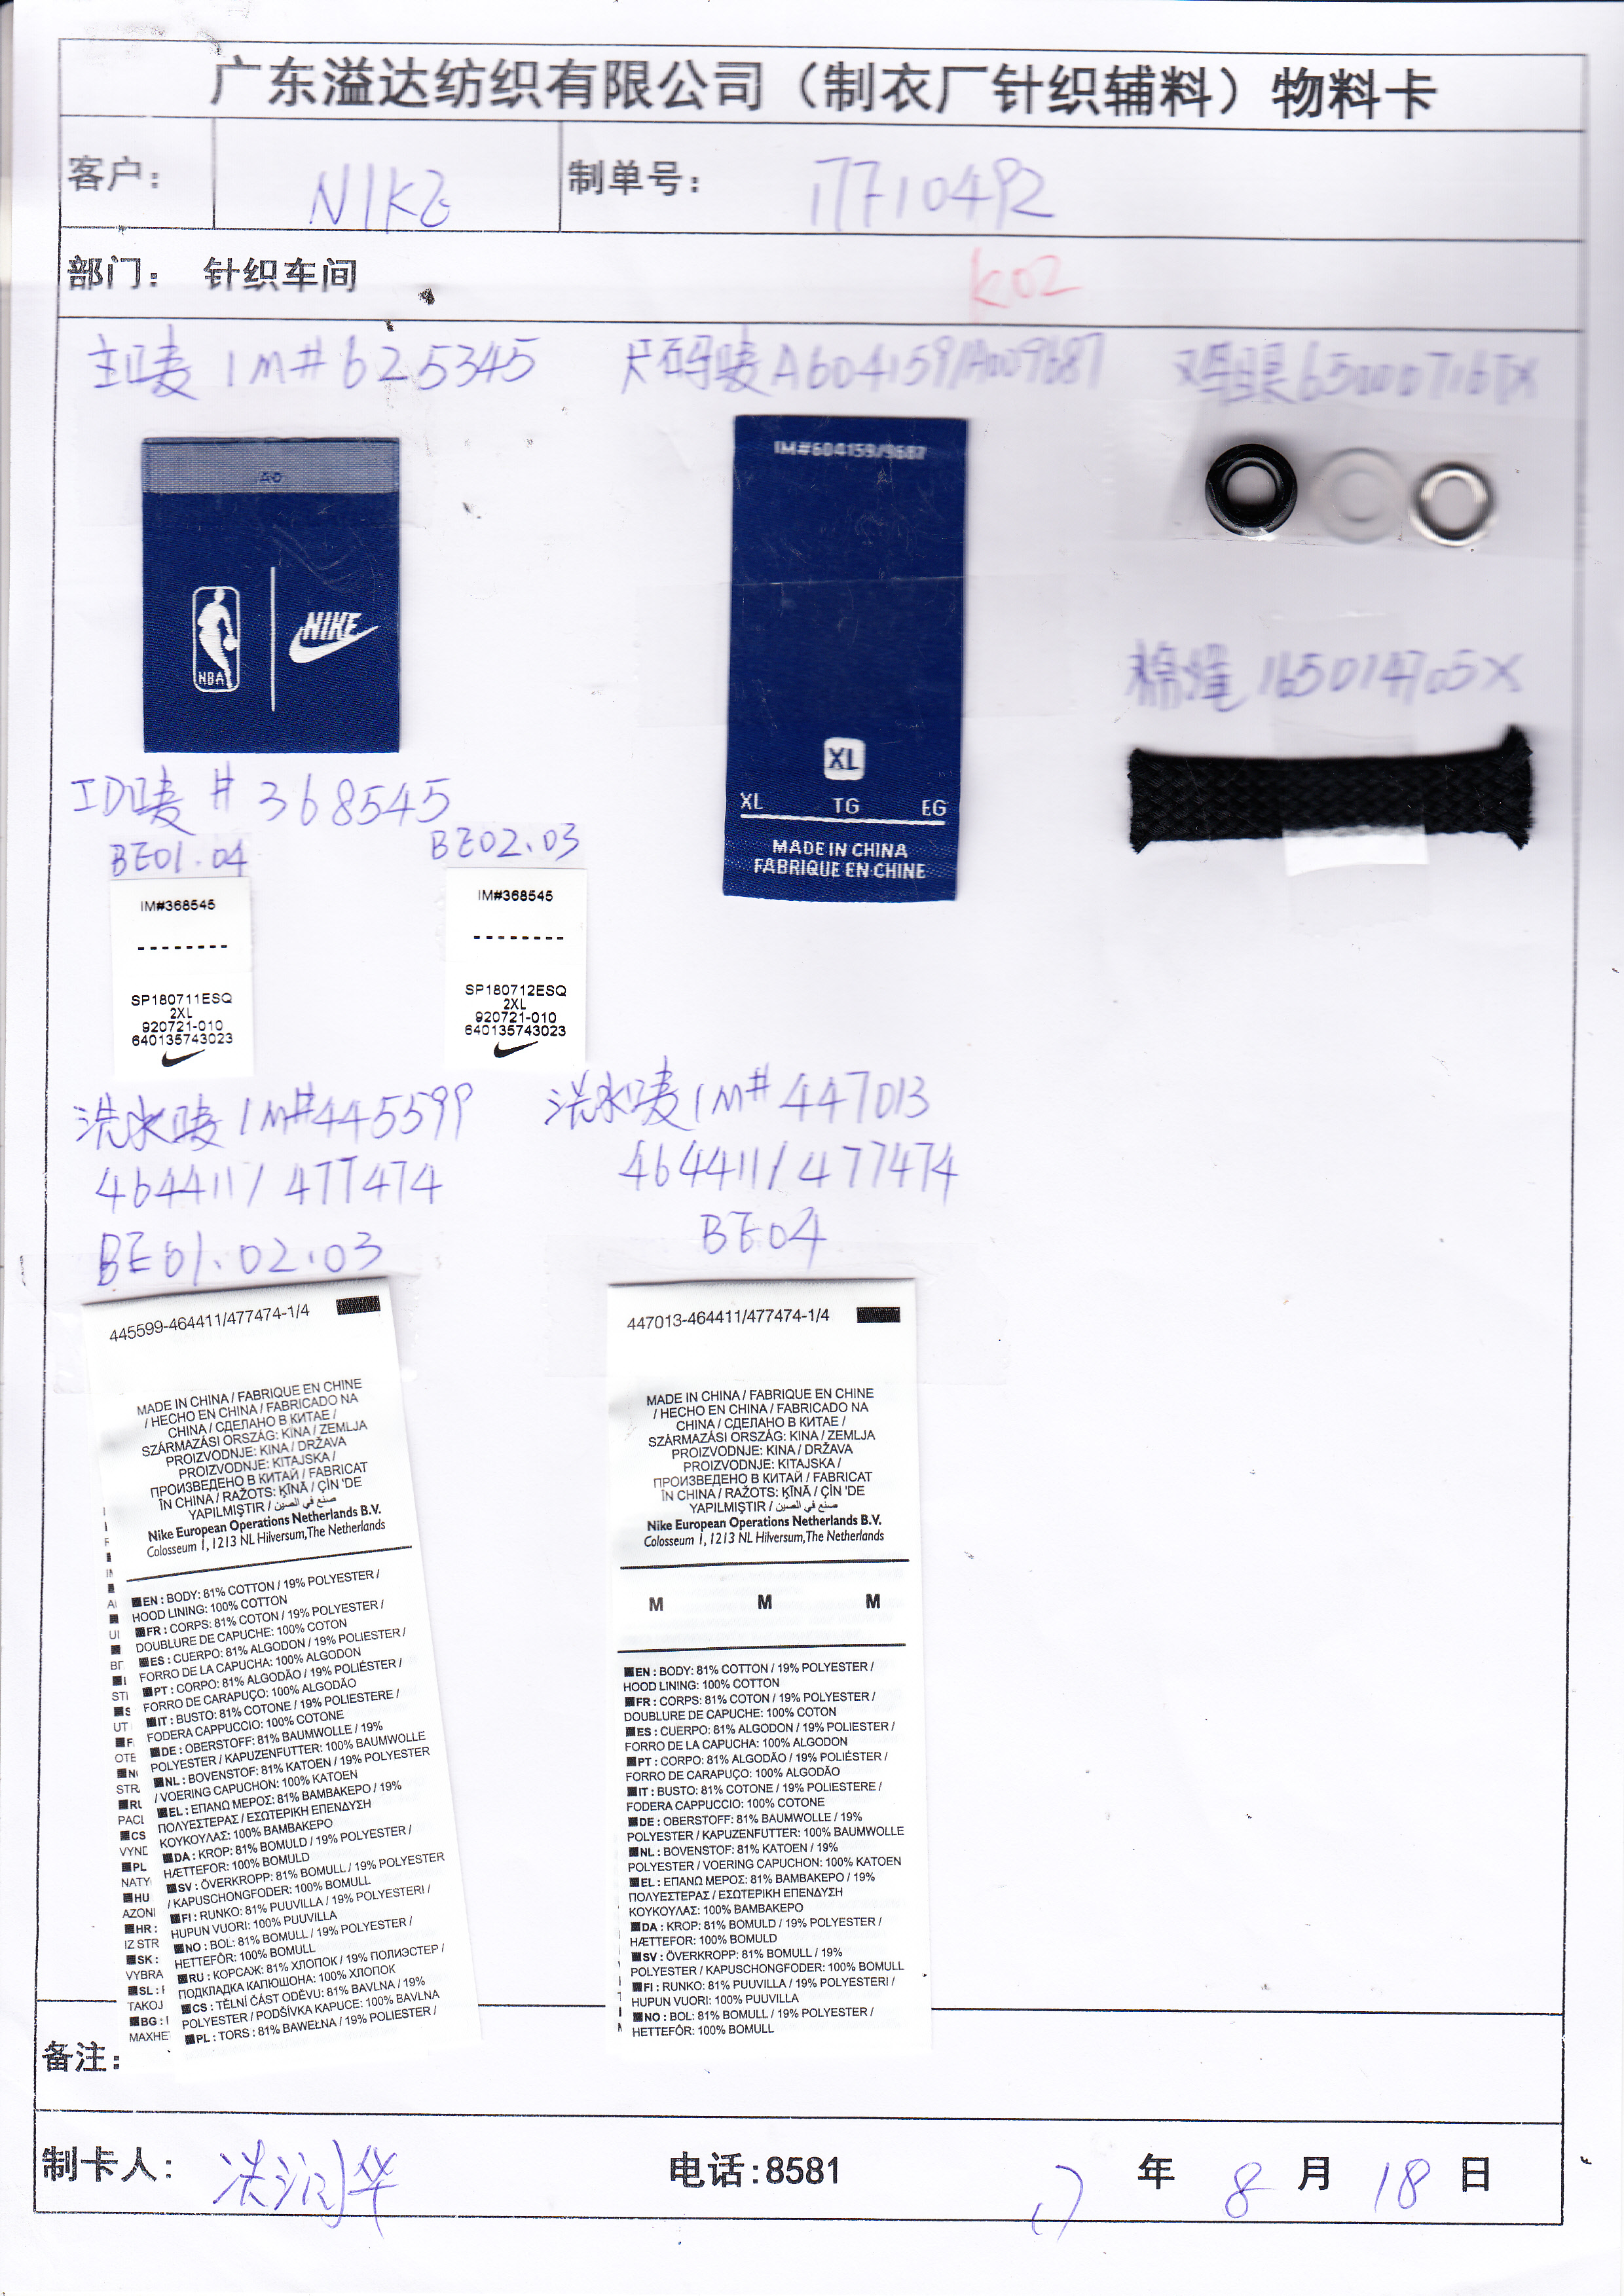 广东溢达纺织有限公司（制衣厂针织辅料）物料卡
客户： NIKE 制单号： 17F10492
部门： 针织车间 K02
主唛 IM#625345
尺码唛 A604159/A009687
鸡眼
AO
NBA NIKE
IM#604159/9687
XL
XL TG EG
MADE IN CHINA
FABRIQUE EN CHINE
棉绳 165014705X
ID唛 #368545
BE01.04
IM#368545
--------
SP180711ESQ
2XL
920721-010
640135743023
BE02.03
IM#368545
--------
SP180712ESQ
2XL
920721-010
640135743023
洗水唛 IM#445599
464411/477474
BE01.02.03
445599-464411/477474-1/4
MADE IN CHINA / FABRIQUE EN CHINE
/ HECHO EN CHINA / FABRICADO NA
CHINA / СДЕЛАНО В КИТАЕ /
SZÁRMAZÁSI ORSZÁG: KINA / ZEMLJA
PROIZVODNJE: KINA / DRŽAVA
PROIZVODNJE: KITAJSKA /
ПРОИЗВЕДЕНО В КИТАЙ / FABRICAT
ÎN CHINA / RAŽOTS: ĶĪNĀ / ÇİN 'DE
YAPILMIŞTIR / صنع في الصين
Nike European Operations Netherlands B.V.
Colosseum 1, 1213 NL Hilversum,The Netherlands
EN : BODY: 81% COTTON / 19% POLYESTER /
HOOD LINING: 100% COTTON
FR : CORPS: 81% COTON / 19% POLYESTER /
DOUBLURE DE CAPUCHE: 100% COTON
ES : CUERPO: 81% ALGODON / 19% POLIESTER /
FORRO DE LA CAPUCHA: 100% ALGODON
PT : CORPO: 81% ALGODÃO / 19% POLIÉSTER /
FORRO DE CARAPUÇO: 100% ALGODÃO
IT : BUSTO: 81% COTONE / 19% POLIESTERE /
FODERA CAPPUCCIO: 100% COTONE
DE : OBERSTOFF: 81% BAUMWOLLE / 19%
POLYESTER / KAPUZENFUTTER: 100% BAUMWOLLE
NL : BOVENSTOF: 81% KATOEN / 19% POLYESTER
/ VOERING CAPUCHON: 100% KATOEN
EL : ΕΠΑΝΩ ΜΕΡΟΣ: 81% ΒΑΜΒΑΚΕΡΟ / 19%
ΠΟΛΥΕΣΤΕΡΑΣ / ΕΣΩΤΕΡΙΚΗ ΕΠΕΝΔΥΣΗ
ΚΟΥΚΟΥΛΑΣ: 100% ΒΑΜΒΑΚΕΡΟ
DA : KROP: 81% BOMULD / 19% POLYESTER /
HÆTTEFOR: 100% BOMULD
SV : ÖVERKROPP: 81% BOMULL / 19% POLYESTER
/ KAPUSCHONGFODER: 100% BOMULL
FI : RUNKO: 81% PUUVILLA / 19% POLYESTERI /
HUPUN VUORI: 100% PUUVILLA
NO : BOL: 81% BOMULL / 19% POLYESTER /
HETTEFÔR: 100% BOMULL
RU : КОРСАЖ: 81% ХЛОПОК / 19% ПОЛИЭСТЕР /
ПОДКЛАДКА КАПЮШОНА: 100% ХЛОПОК
CS : TĚLNÍ ČÁST ODĚVU: 81% BAVLNA / 19%
POLYESTER / PODŠÍVKA KAPUCE: 100% BAVLNA
PL : TORS : 81% BAWEŁNA / 19% POLIESTER /
洗水唛 IM#447013
464411/477474
BE04
447013-464411/477474-1/4
MADE IN CHINA / FABRIQUE EN CHINE
/ HECHO EN CHINA / FABRICADO NA
CHINA / СДЕЛАНО В КИТАЕ /
SZÁRMAZÁSI ORSZÁG: KINA / ZEMLJA
PROIZVODNJE: KINA / DRŽAVA
PROIZVODNJE: KITAJSKA /
ПРОИЗВЕДЕНО В КИТАЙ / FABRICAT
ÎN CHINA / RAŽOTS: ĶĪNĀ / ÇİN 'DE
YAPILMIŞTIR / صنع في الصين
Nike European Operations Netherlands B.V.
Colosseum 1, 1213 NL Hilversum,The Netherlands
M M M
EN : BODY: 81% COTTON / 19% POLYESTER /
HOOD LINING: 100% COTTON
FR : CORPS: 81% COTON / 19% POLYESTER /
DOUBLURE DE CAPUCHE: 100% COTON
ES : CUERPO: 81% ALGODON / 19% POLIESTER /
FORRO DE LA CAPUCHA: 100% ALGODON
PT : CORPO: 81% ALGODÃO / 19% POLIÉSTER /
FORRO DE CARAPUÇO: 100% ALGODÃO
IT : BUSTO: 81% COTONE / 19% POLIESTERE /
FODERA CAPPUCCIO: 100% COTONE
DE : OBERSTOFF: 81% BAUMWOLLE / 19%
POLYESTER / KAPUZENFUTTER: 100% BAUMWOLLE
NL : BOVENSTOF: 81% KATOEN / 19%
POLYESTER / VOERING CAPUCHON: 100% KATOEN
EL : ΕΠΑΝΩ ΜΕΡΟΣ: 81% ΒΑΜΒΑΚΕΡΟ / 19%
ΠΟΛΥΕΣΤΕΡΑΣ / ΕΣΩΤΕΡΙΚΗ ΕΠΕΝΔΥΣΗ
ΚΟΥΚΟΥΛΑΣ: 100% ΒΑΜΒΑΚΕΡΟ
DA : KROP: 81% BOMULD / 19% POLYESTER /
HÆTTEFOR: 100% BOMULD
SV : ÖVERKROPP: 81% BOMULL / 19%
POLYESTER / KAPUSCHONGFODER: 100% BOMULL
FI : RUNKO: 81% PUUVILLA / 19% POLYESTERI /
HUPUN VUORI: 100% PUUVILLA
NO : BOL: 81% BOMULL / 19% POLYESTER /
HETTEFÔR: 100% BOMULL
备注：
制卡人： 电话:8581 17 年 8 月 18 日